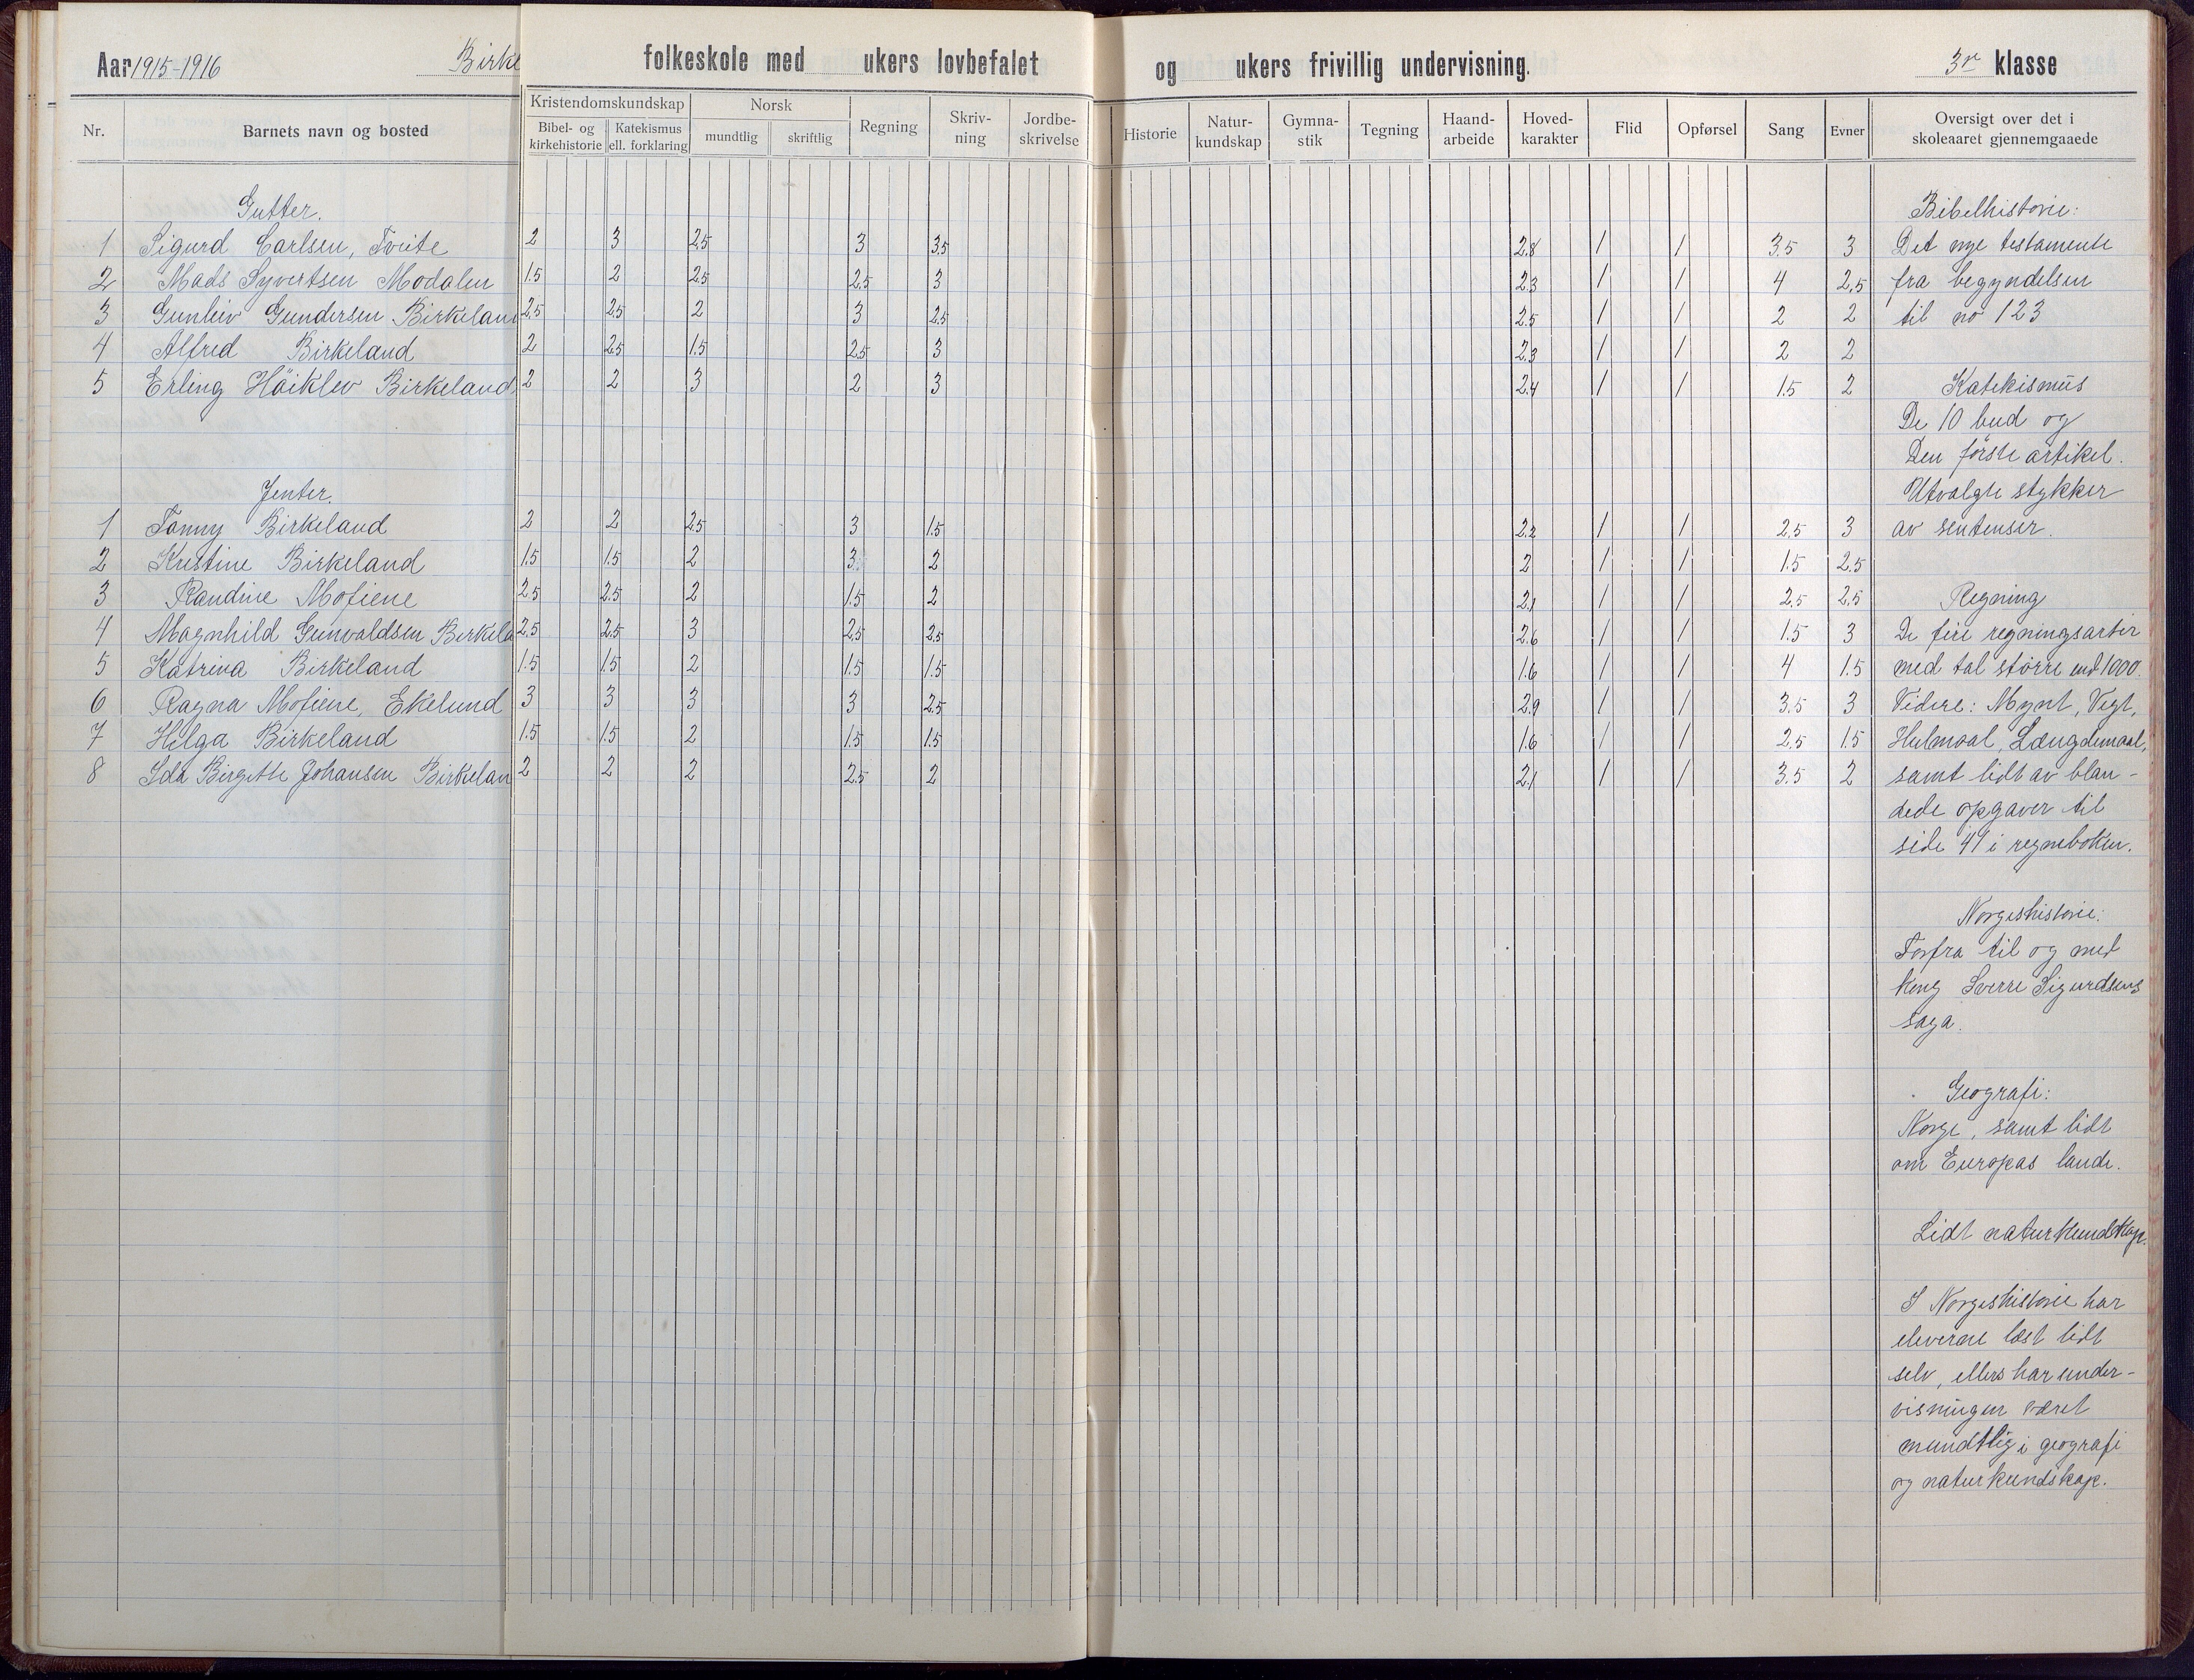 Aar 1915-1916 Birke folkeskole med ukers lovbefalet og ukers frivillig undervisning. 3r klasse
Nr. Barnets navn og bosted Kristendomskundskap Bibel- og kirkehistorie Katekismus ell. forklaring Norsk mundtlig skriftlig Regning Skriv-ning Jordbe-skrivelse Historie Natur-kundskap Gymna-stik Tegning Haand-arbeide Hoved-karakter Flid Opførsel Sang Evner Oversigt over det i skoleaaret gjennemgaaede
Gutter.
1 Sigurd Carlsen, Tveite 2 3 2.5 3 3.5 2.8 1 1 3.5 3
2 Mads Syvertsen Modalen 1.5 2 2.5 2.5 3 2.3 1 1 4 2.5
3 Gunleiv Gundersen Birkeland 2.5 2.5 2 3 2.5 2.5 1 1 2 2
4 Alfred Birkeland 2 2.5 1.5 2.5 3 2.3 1 1 2 2
5 Erling Höiklev Birkeland 2 2 3 2 3 2.4 1 1 1.5 2
Jenter.
1 Fanny Birkeland 2 2 2.5 3 1.5 2.2 1 1 2.5 3
2 Kristine Birkeland 1.5 1.5 2 3 2 2 1 1 1.5 2.5
3 Randine Mofiene 2.5 2.5 2 1.5 2 2.1 1 1 2.5 2.5
4 Magnhild Gunvaldsen Birkela 2.5 2.5 3 2.5 2.5 2.6 1 1 1.5 3
5 Katrina Birkeland 1.5 1.5 2 1.5 1.5 1.6 1 1 4 1.5
6 Ragna Mofiene, Ekelund 3 3 3 3 2.5 2.9 1 1 3.5 3
7 Helga Birkeland 1.5 1.5 2 1.5 1.5 1.6 1 1 2.5 1.5
8 Ida Birgitte Johansen Birkelan 2 2 2 2.5 2 2.1 1 1 3.5 2
Bibelhistorie:
Det nye testamente
fra begyndelsen
til no 123
Katekismus
De 10 bud og
Den förste artikel.
Utvalgte stykker
av sentenser.
Regning
De fire regningsarter
med tal större end 1000.
Videre: Mynt, Vegt,
Hulmaal, Længdemaal,
samt lidt av blan-
dede opgaver til
side 41 i regneboken.
Norgeshistorie:
Forfra til og med
kong Sverre Sigurdsens
saga.
Geografi:
Norge, samt lidt
om Europas lande.
Lidt naturkundskap.
I Norgeshistorie har
eleverne læst lidt
selv, ellers har under-
visningen været
mundtlig i geografi
og naturkundskap.